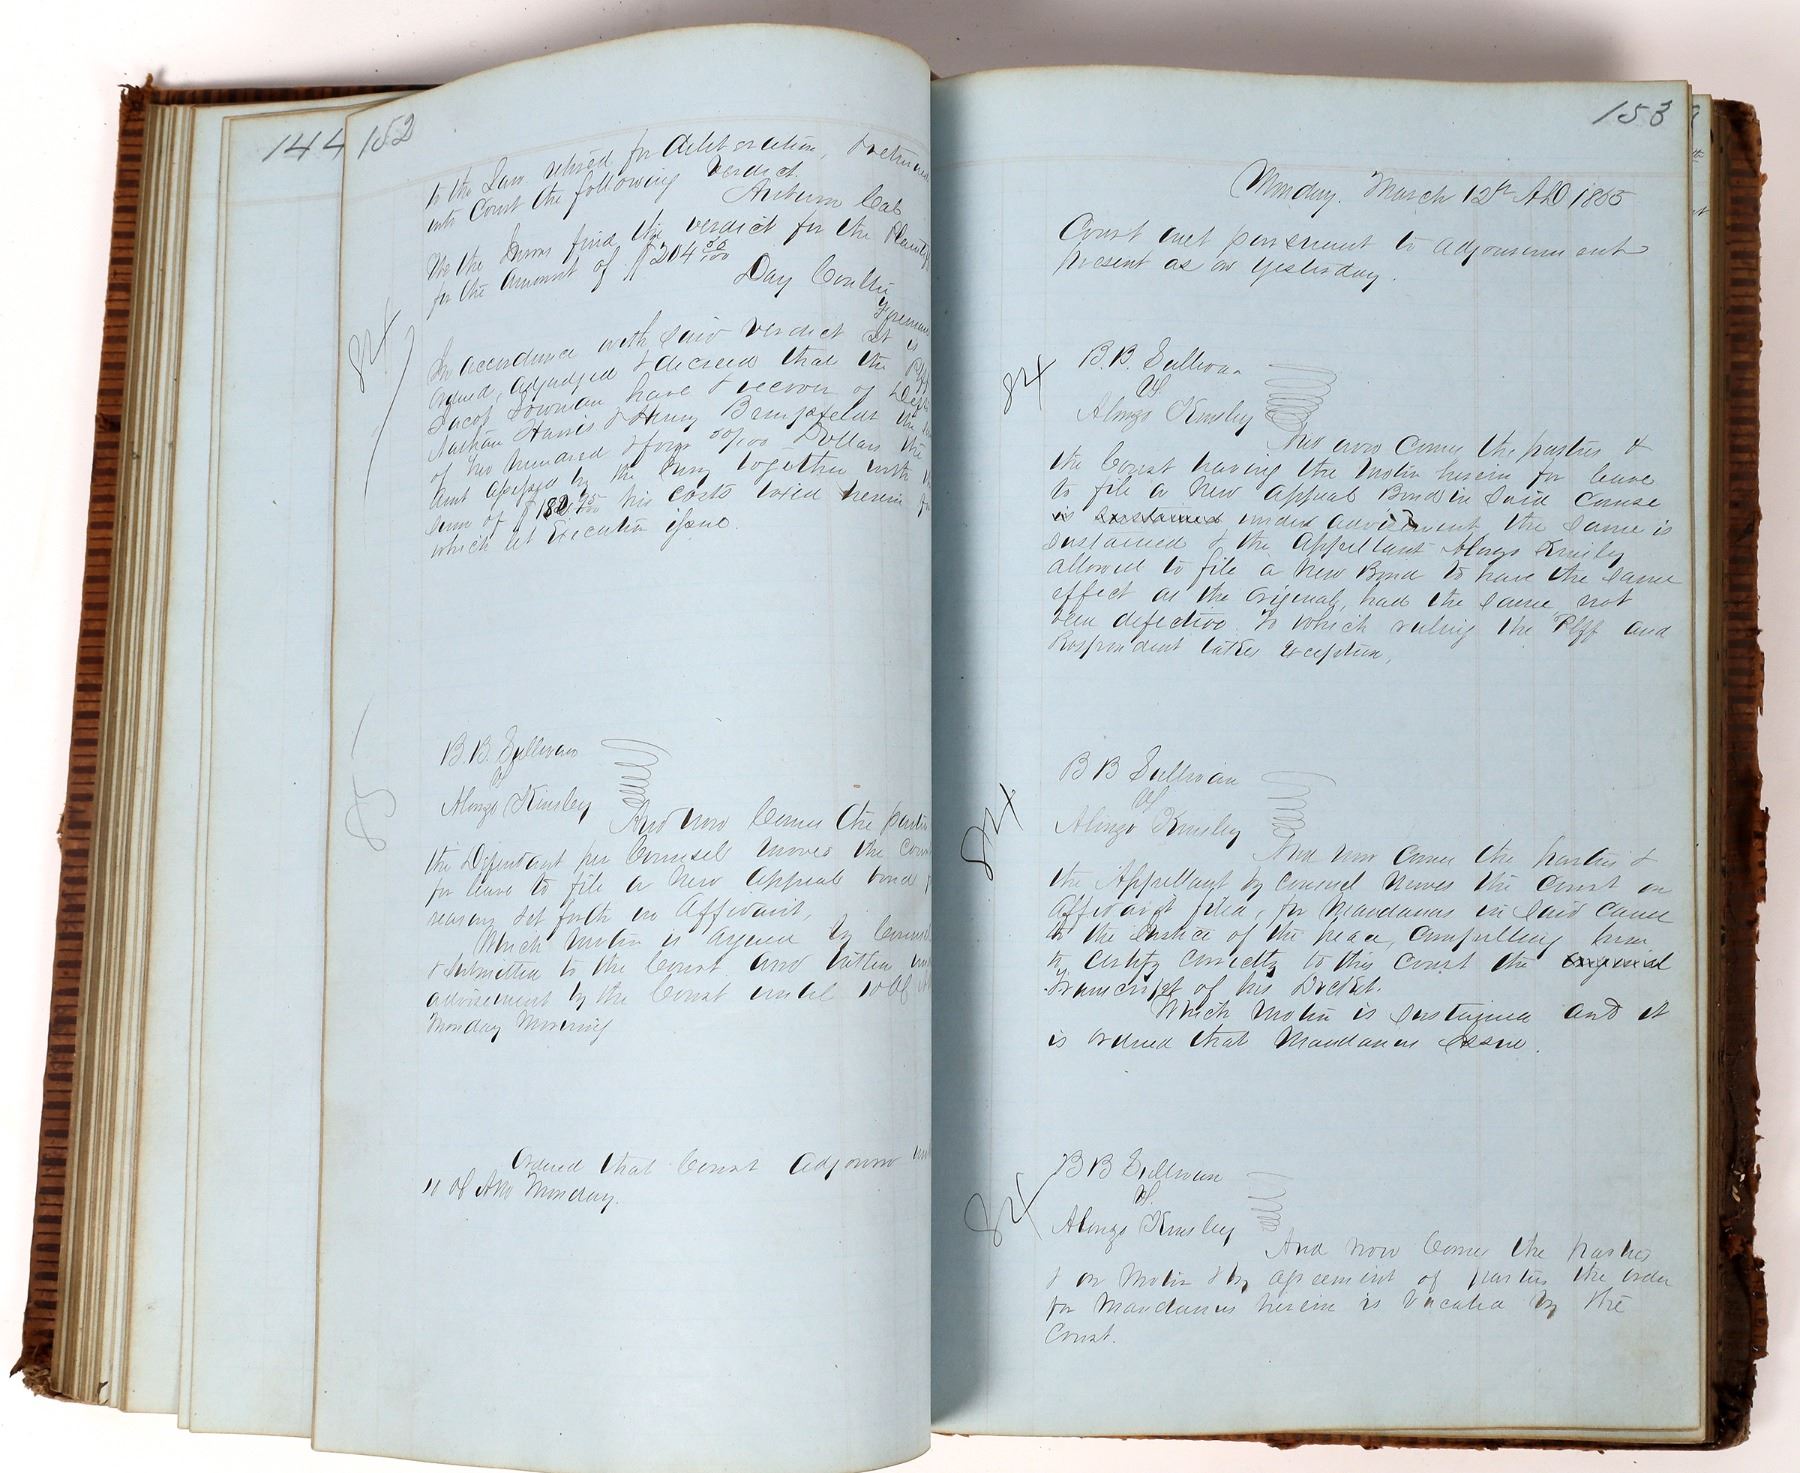 144
152
to the Jury retired for deliberation, & returned
into Court the following verdict.
We the Jurors find the verdict for the Plaintiff
for the Amount of $204 50/100
Day
Foreman
84
In accordance with said verdict it is
ordered, adjudged & decreed that the Plff
Jacob Bowman have & recover of Defts
Nathan Harris & Henry the
of Two hundred & four 50/100 Dollars the
amt assessed by the Jury together with
sum of $ his costs taxed herein for
which let Execution issue.
85
B. B. Sullivan
vs
Alonzo Kinsley
And now Comes the parties
the Defendant per Counsel moves the Court
for leave to file a New Appeal bond
reasons set forth in Affidavit,
Which motion is argued by Counsel
& Submitted to the Court and taken
advisement by the Court until 10
Monday Morning
Ordered that Court Adjourn
10 Monday.
153
Monday. March 12th AD 1855
Court met persuent to adjournment
Present as on yesterday.
84
B. B. Sullivan
vs.
Alonzo Kinsley
And now comes the parties &
the Court having the motion herein for leave
to file a New Appeal Bond in said cause
is sustained under advisement, the same is
sustained & the Appellant Alonzo Kinsley
allowed to file a New Bond to have the same
effect as the original, had the same not
been defective. To which ruling the Plff and
Respondent takes exception.
84
B B Sullivan
vs
Alonzo Kinsley
And now comes the parties &
the Appellant by counsel moves the Court on
Affidavit filed, for Mandamus in said cause
to the Justice of the peace, compelling him
to certify correctly to this Court the original
transcript of his Docket.
Which motion is sustained and it
is ordered that Mandamus issue.
84
B B Sullivan
vs.
Alonzo Kinsley
And now Comes the parties
& on motion & by agreement of parties the order
for Mandamus herein is vacated by the
Court.